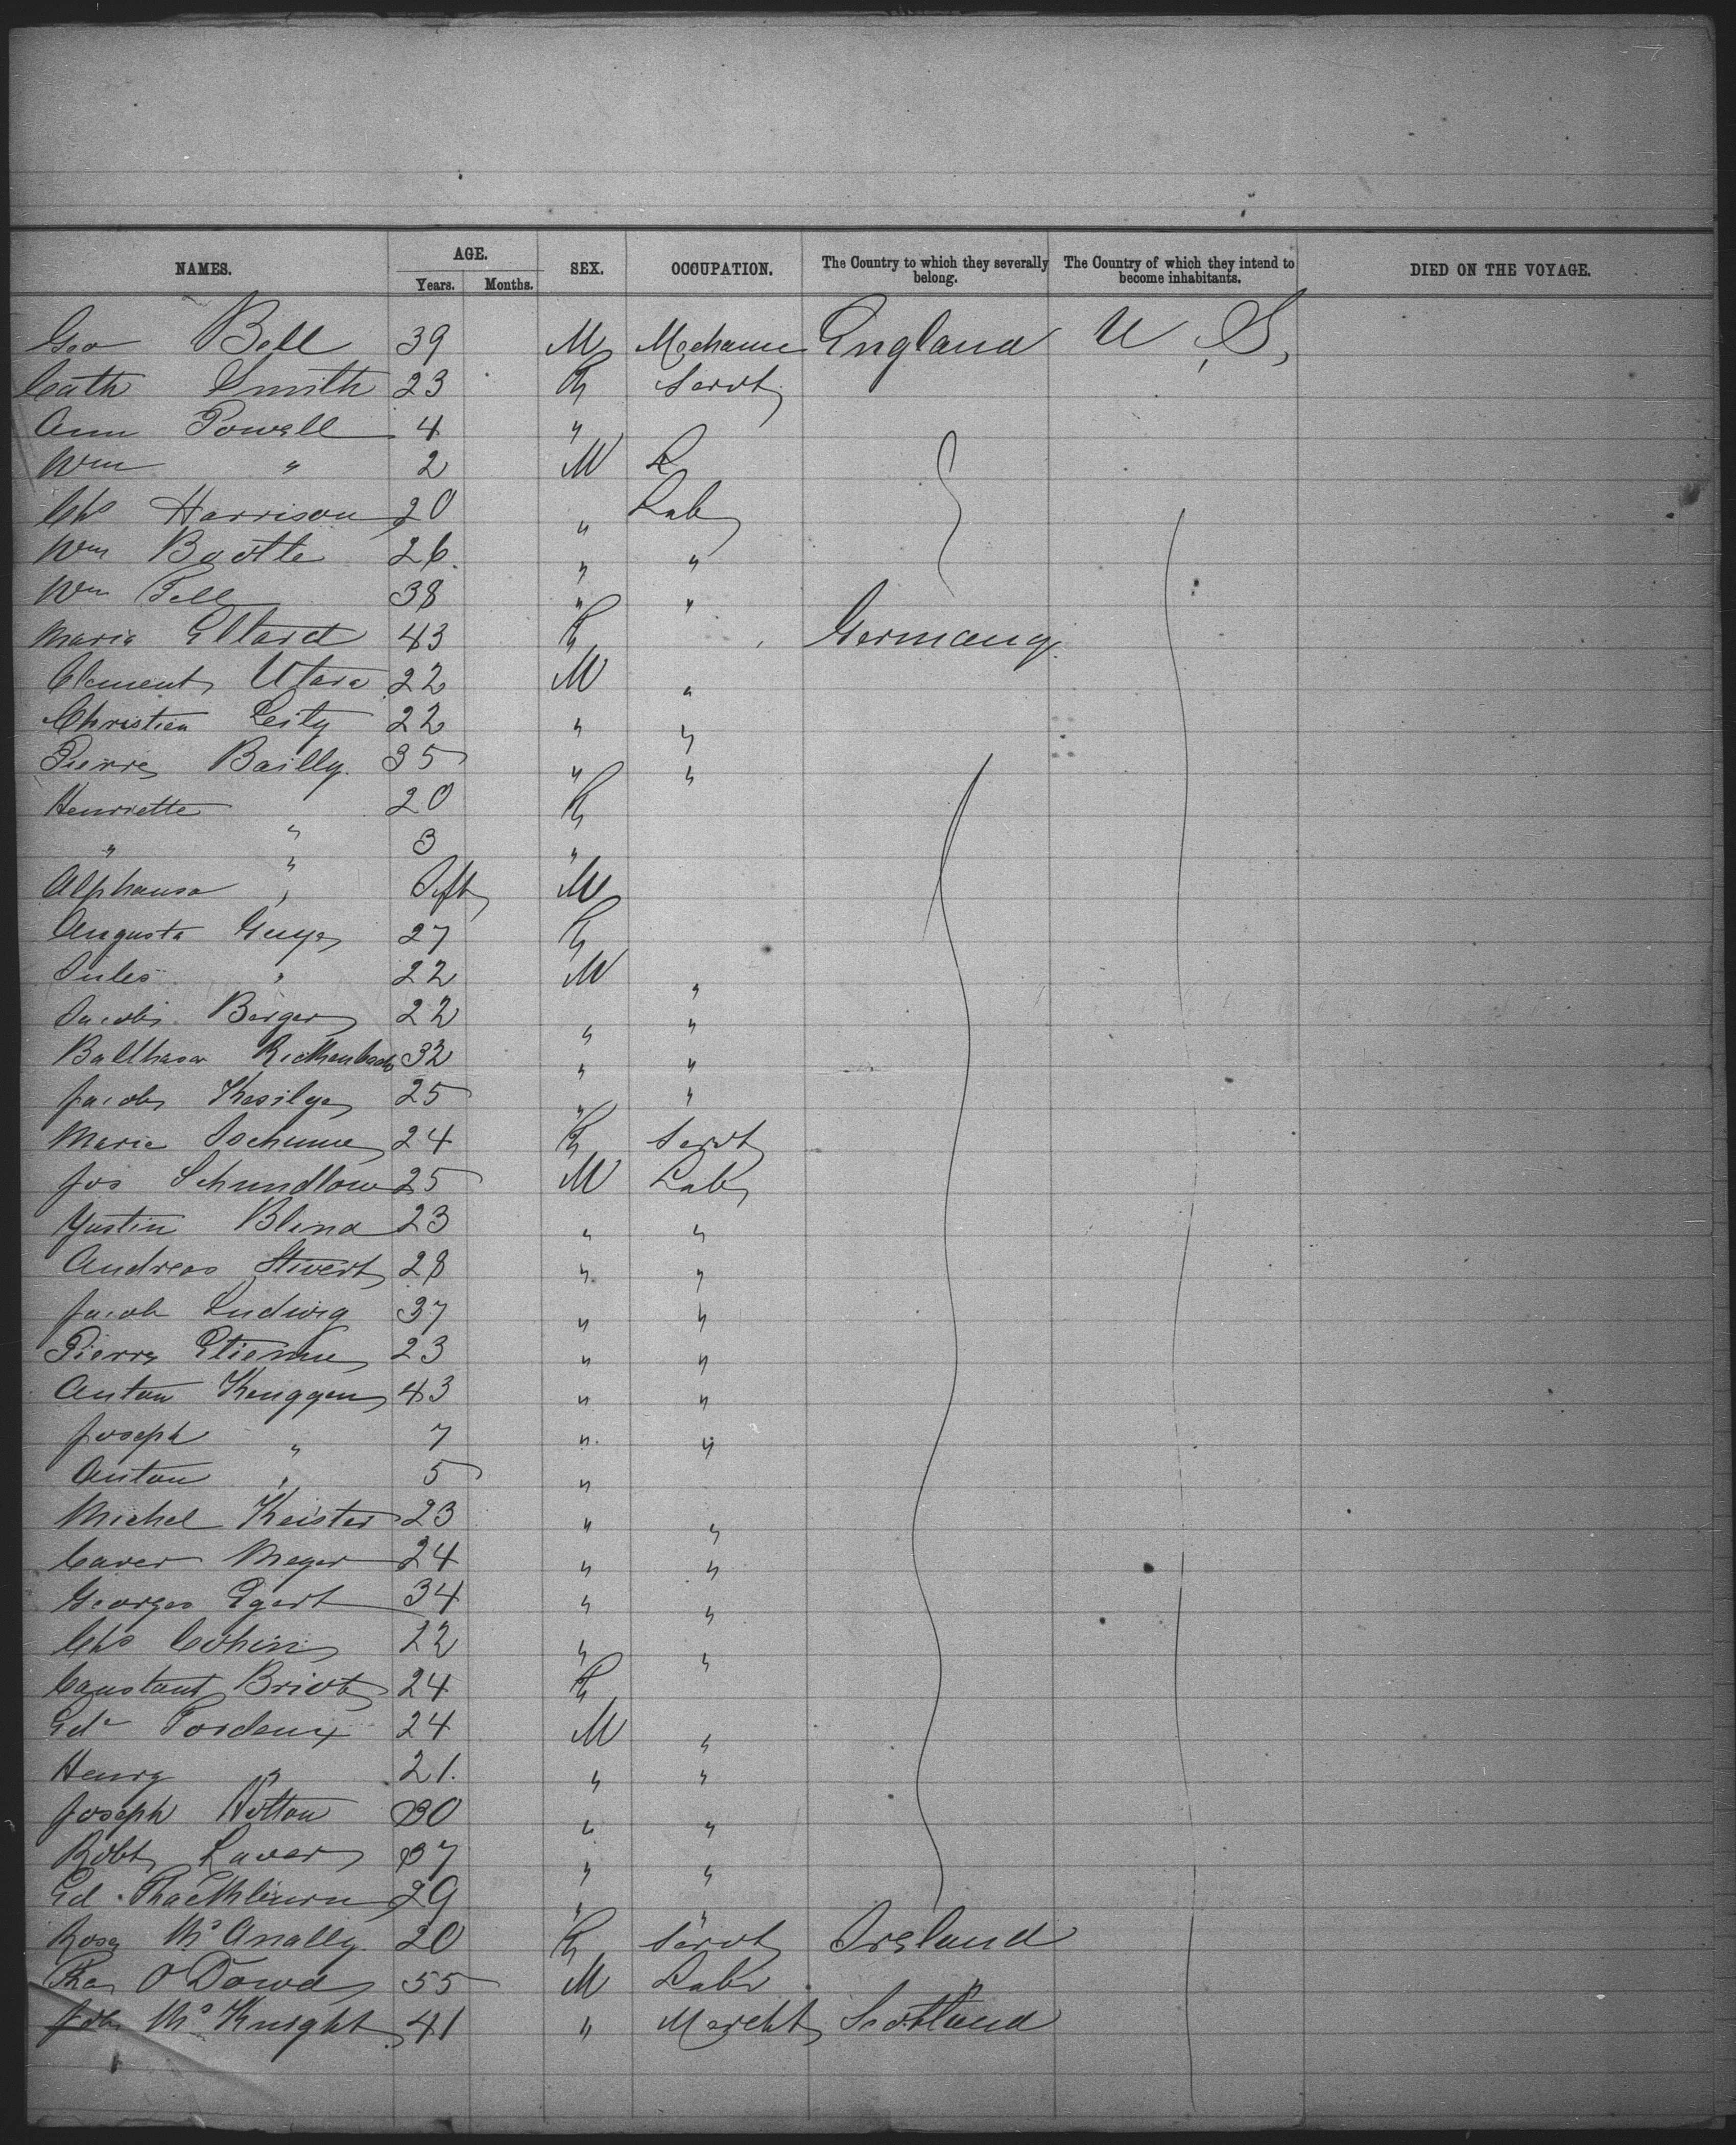 NAMES. AGE. SEX. OCCUPATION. The Country to which they severally belong. The Country of which they intend to become inhabitants. DIED ON THE VOYAGE.
Years. Months.
Geo Bell 39 M Mechanic England U S,
Cath Smith 23 F Servt
Ann Powell 4 "
Wm " 2 M
Chs Harrison 20 " Lab
Wm Bootle 26. " "
Wm Tell 38 " "
Maria Ellard 43 F Germany
Clement 22 M "
Christian 22 " "
Pierre Bailly. 35 " "
Henriette " 20 F
" " 3 "
Alphonso " Inft M
Augusta Guye 27 F
Jules " 22 M "
Jacob Berger 22 " "
Balthasar Rickenbach 32 " "
Jacob 25 " "
Marie 24 F Servt
Jos 25 M Lab
Justin Blind 23 " "
Andreas 28 " "
Jacob Ludwig 37 " "
Pierre Etienne 23 " "
Anton Kenggen 43 " "
Joseph " 7 " "
Anton " 5 "
Michel Keister 23 " "
Meyer 24 " "
Georges Egert 34 " "
Chs 22 " "
Constant Briot 24 F
Edw 24 M "
Henry " 21. " "
Joseph 30 " "
Robt Laver 37 " "
Ed 29 " "
Rose McAnally. 20 F Servt Ireland
Tho O'Dowd 55 M Labr
Joh McKnight 41 " Mercht Scotland